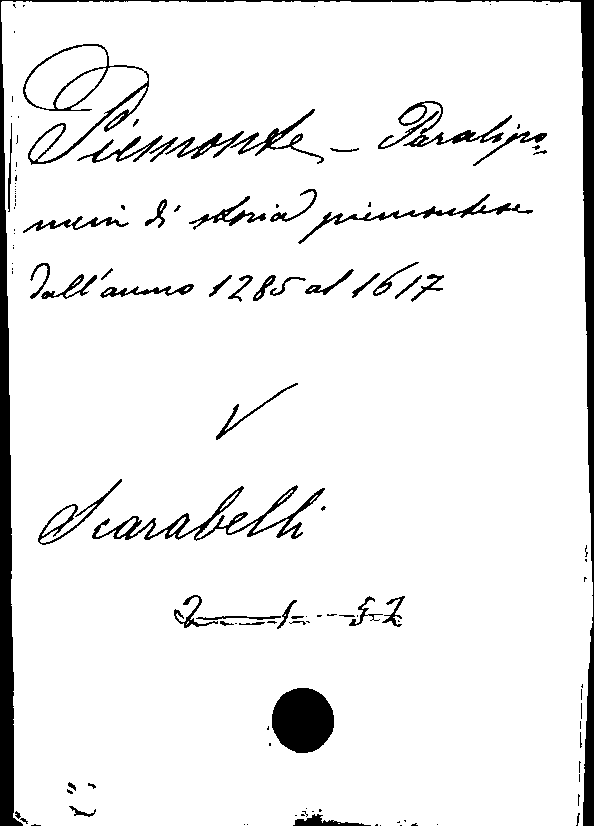 Piemonte - Paralipo=
meni di storia piemontese
dall'anno 1285 al 1617
V
Scarabelli
2 1 52